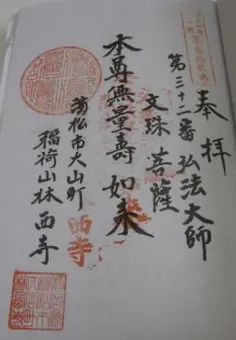 奉拝
第三十二番 弘法大師
文珠菩薩
本尊無量壽如来
浜松市大山町
西寺
福荷山林西寺